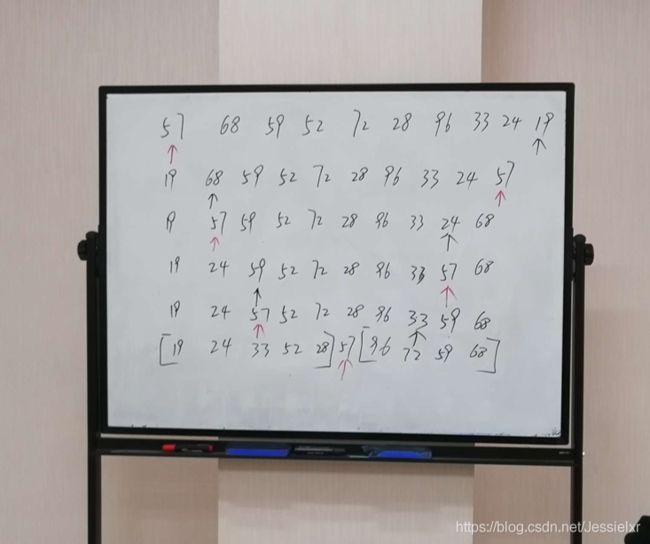 57 68 59 52 72 28 96 33 24 19
19 68 59 52 72 28 96 33 24 57
19 57 59 52 72 28 96 33 24 68
19 24 59 52 72 28 96 33 57 68
19 24 57 52 72 28 96 33 59 68
[19 24 33 52 28] 57 [96 72 59 68]
https://blog.csdn.net/Jessielxr